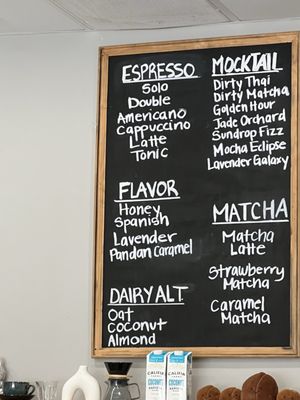 ESPRESSO
Solo
Double
Americano
Cappuccino
Latte
Tonic
FLAVOR
Honey
Spanish
Lavender
Pandan Caramel
DAIRY ALT
Oat
Coconut
Almond
MOCKTAIL
Dirty Thai
Dirty Matcha
Golden Hour
Jade Orchard
Sundrop Fizz
Mocha Eclipse
Lavender Galaxy
MATCHA
Matcha
Latte
Strawberry
Matcha
Caramel
Matcha
CALIFIA
COCONUT
CALIFIA
COCONUT